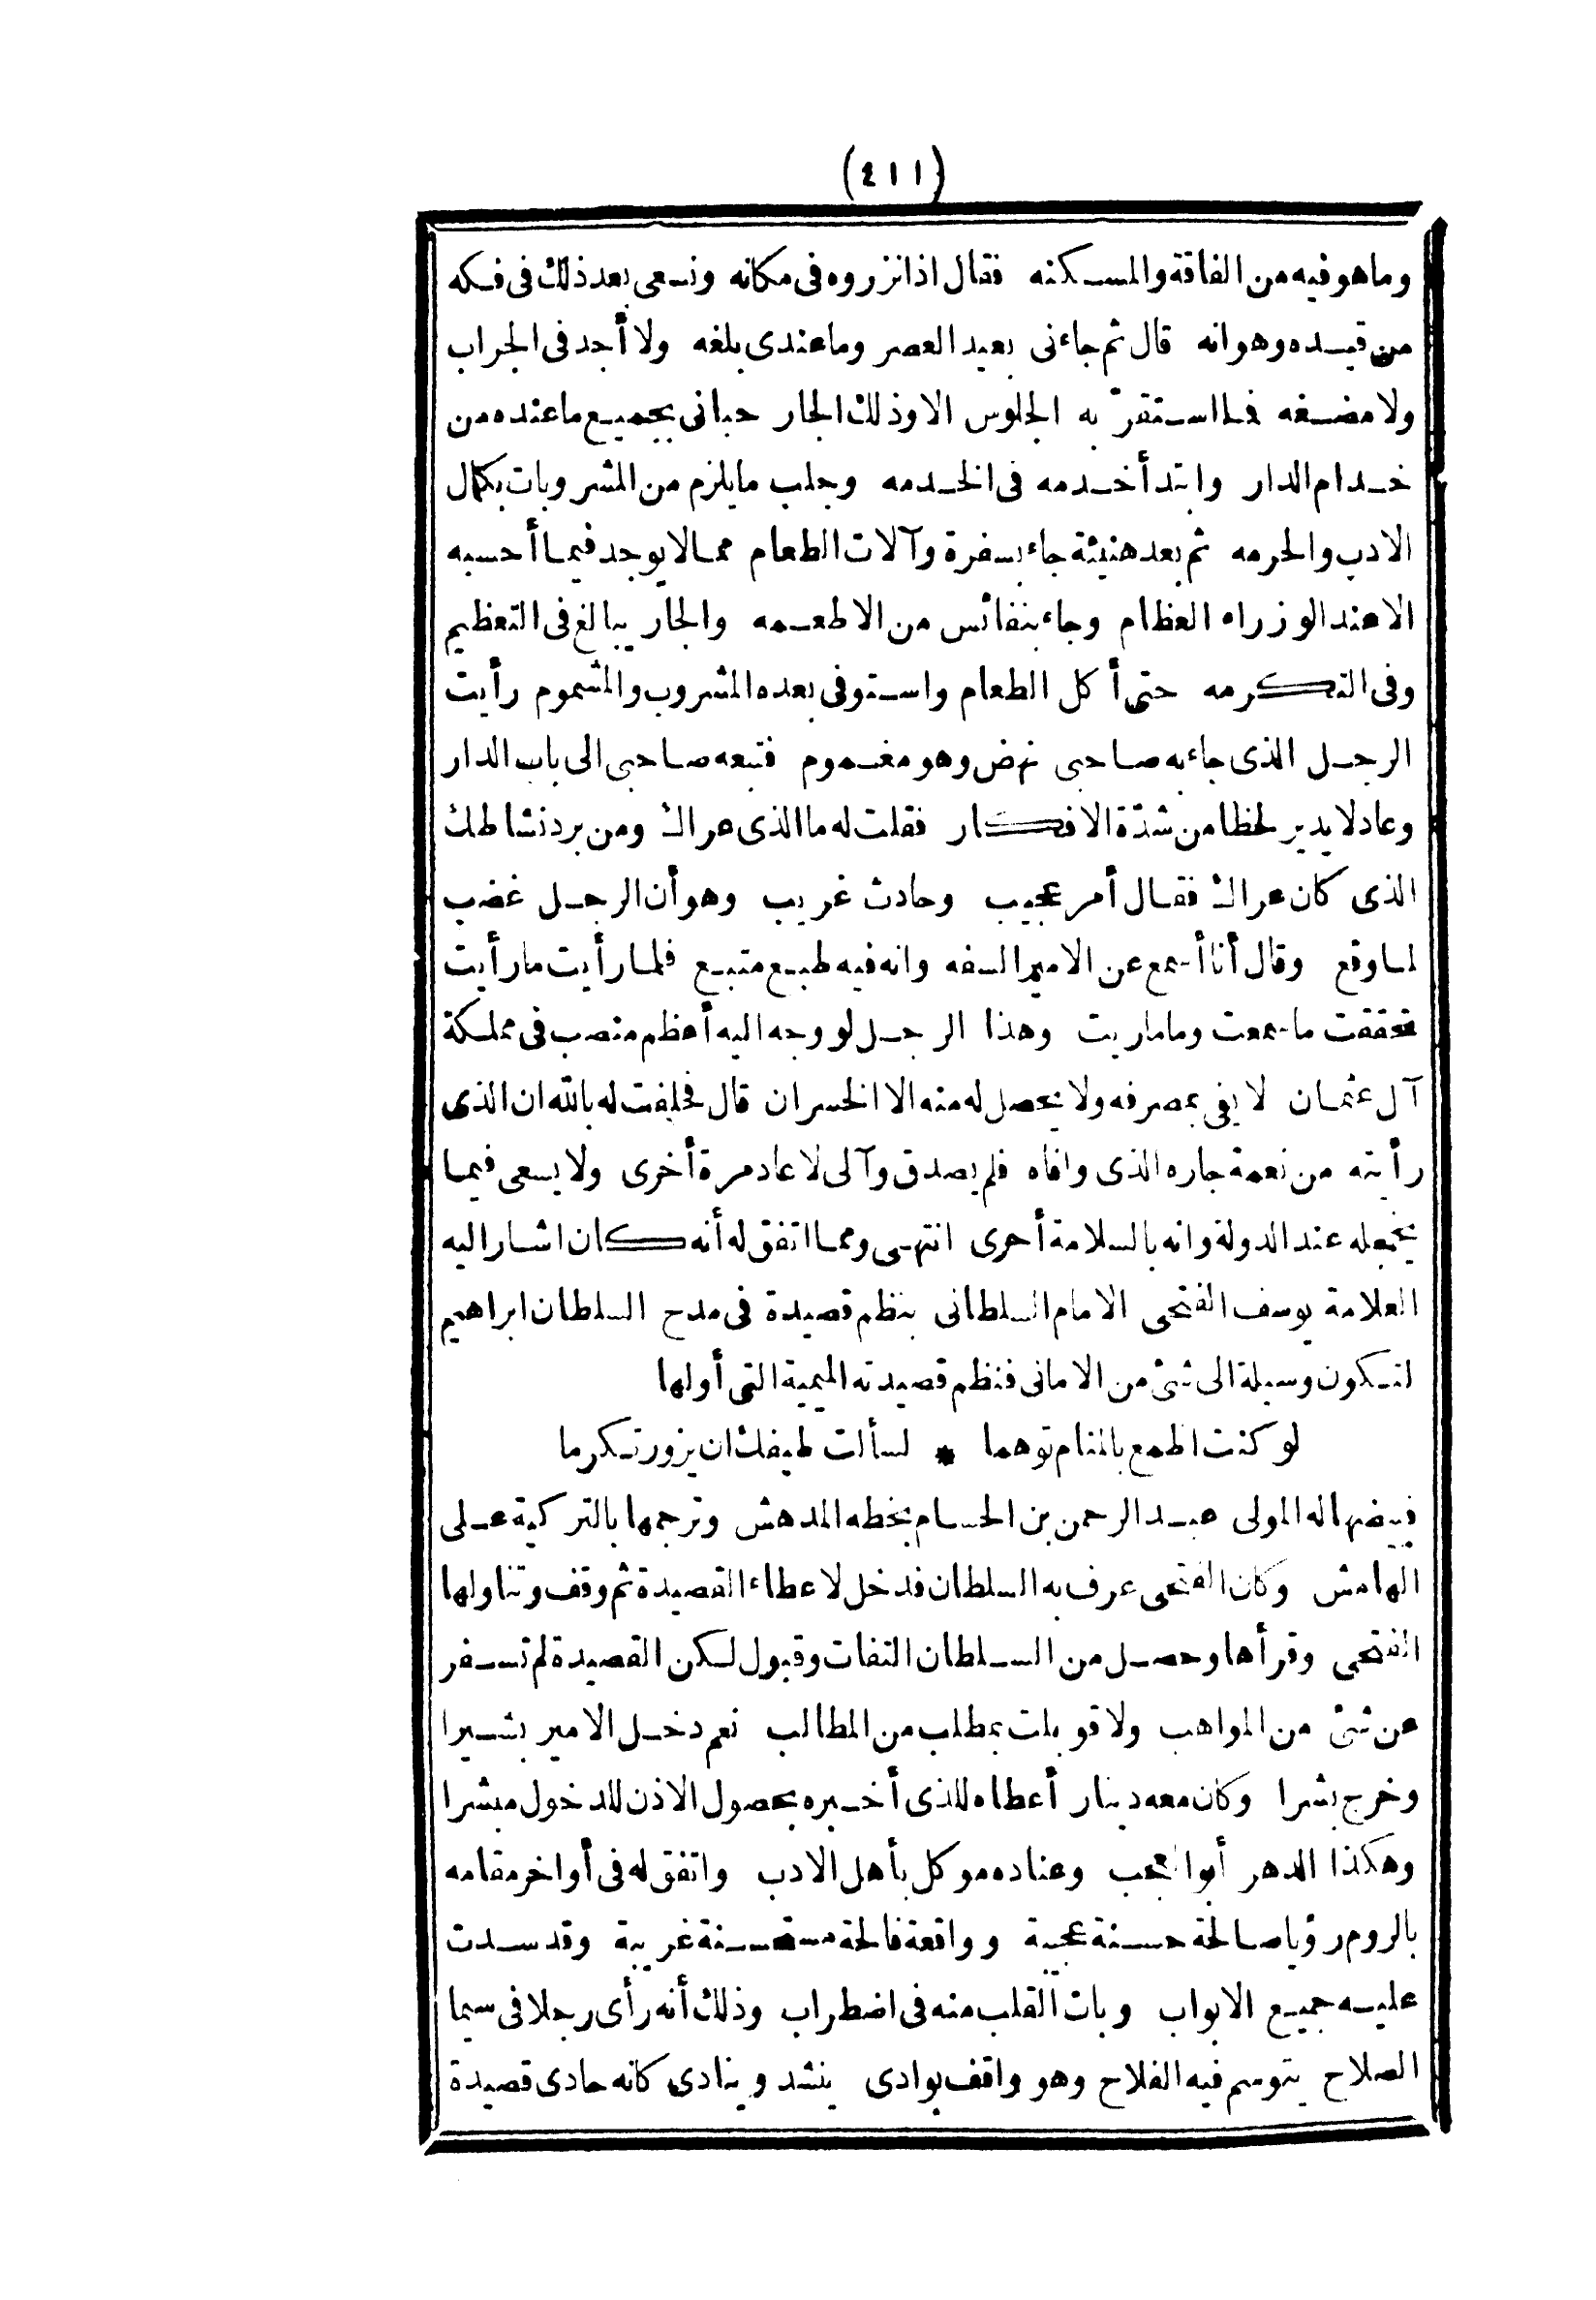 (٤١١)
وماهوفيه من الفاقة والمسكنه فقال اذا نزروه فى مكانه ونسعى بعد ذلك فى فكه
من قيده وهوانه قال ثم جاءنى بعيد العصر وما عندى بلغه ولا أجد فى الجراب
ولا مضغه فلما استقرّ به الجلوس الا وذلك الجار حبانى بجميع ما عنده من
خدام الدار وابتدأ خدمه فى الخدمه وجلب ما يلزم من المشروبات بكمال
الادب والحرمه ثم بعد هنيئة جاء بسفرة وآلات الطعام مما لا يوجد فيما أحسبه
الا عند الوزراء العظام وجاء بنفائس من الاطعمه والجار يبالغ فى التعظيم
وفى التكرمه حتى أكل الطعام واستوفى بعده المشروب والمشموم رأيت
الرجل الذى جاء به صاحبى نهض وهو مغموم فتبعه صاحبى الى باب الدار
وعاد لا يدير لحظا من شدّة الافكار فقلت له ما الذى عراك ومن برد نشاطك
الذى كان عراك فقال أمر عجيب وحادث غريب وهو أن الرجل غضب
لما وقع وقال أنا أسمع عن الامير السفه وانه فيه طبع متبع فلما رأيت ما رأيت
تحققت ما سمعت وما ماريت وهذا الرجل لو وجه اليه أعظم منصب فى مملكة
آل عثمان لا يفى بمصرفه ولا يحصل له منه الا الخسران قال فحلفت له بالله ان الذى
رأيته من نعمة جاره الذى وافاه فلم يصدق وآلى لا عاد مرة أخرى ولا يسعى فيما
يجمعله عند الدولة وانه بالسلامة أحرى انتهى ومما اتفق له أنه كان اشار اليه
العلامة يوسف الفتحى الامام السلطانى بنظم قصيدة فى مدح السلطان ابراهيم
لتكون وسيلة الى شئ من الامانى فنظم قصيدته الميمية التى أولها
لو كنت اطمع بالمنام توهما * لسألت طيفك ان يزور تكرما
فبيضها له المولى عبد الرحمن بن الحسام بخطه المدهش وترجمها بالتركية على
الهامش وكان الفتحى عرف به السلطان فدخل لاعطاء القصيدة ثم وقف وتناولها
الفتحى وقرأها وحصل من السلطان التفات وقبول لكن القصيدة لم تسفر
عن شئ من المواهب ولا قوبلت بمطلب من المطالب نعم دخل الامير بشيرا
وخرج بشرا وكان معه دينار أعطاه للذى أخبره بحصول الاذن للدخول مبشرا
وهكذا الدهر أبوالعجب وعناده موكل بأهل الادب واتفق له فى أواخر مقامه
بالروم رؤيا صالحة حسنة عجيبة وواقعة فالحة مستحسنة غريبة وقد سدت
عليه جميع الابواب وبات القلب منه فى اضطراب وذلك أنه رأى رجلا فى سيما
الصلاح يتوسم فيه الفلاح وهو واقف بوادى ينشد وينادى كانه حادى قصيدة